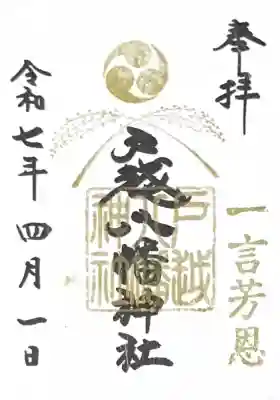 奉拝
一言芳恩
戸越八幡神社
戸越八幡神社
令和七年 四月一日